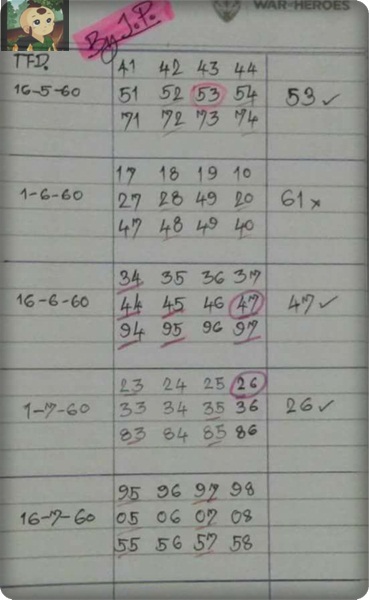 WAR-HEROES
By J.P.
TFD.
41 42 43 44
16-5-60 51 52 53 54 53 ✓
71 72 73 74
17 18 19 10
1-6-60 27 28 49 20 61 ×
47 48 49 40
34 35 36 37
16-6-60 44 45 46 47 47 ✓
94 95 96 97
23 24 25 26
1-7-60 33 34 35 36 26 ✓
83 84 85 86
95 96 97 98
16-7-60 05 06 07 08
55 56 57 58